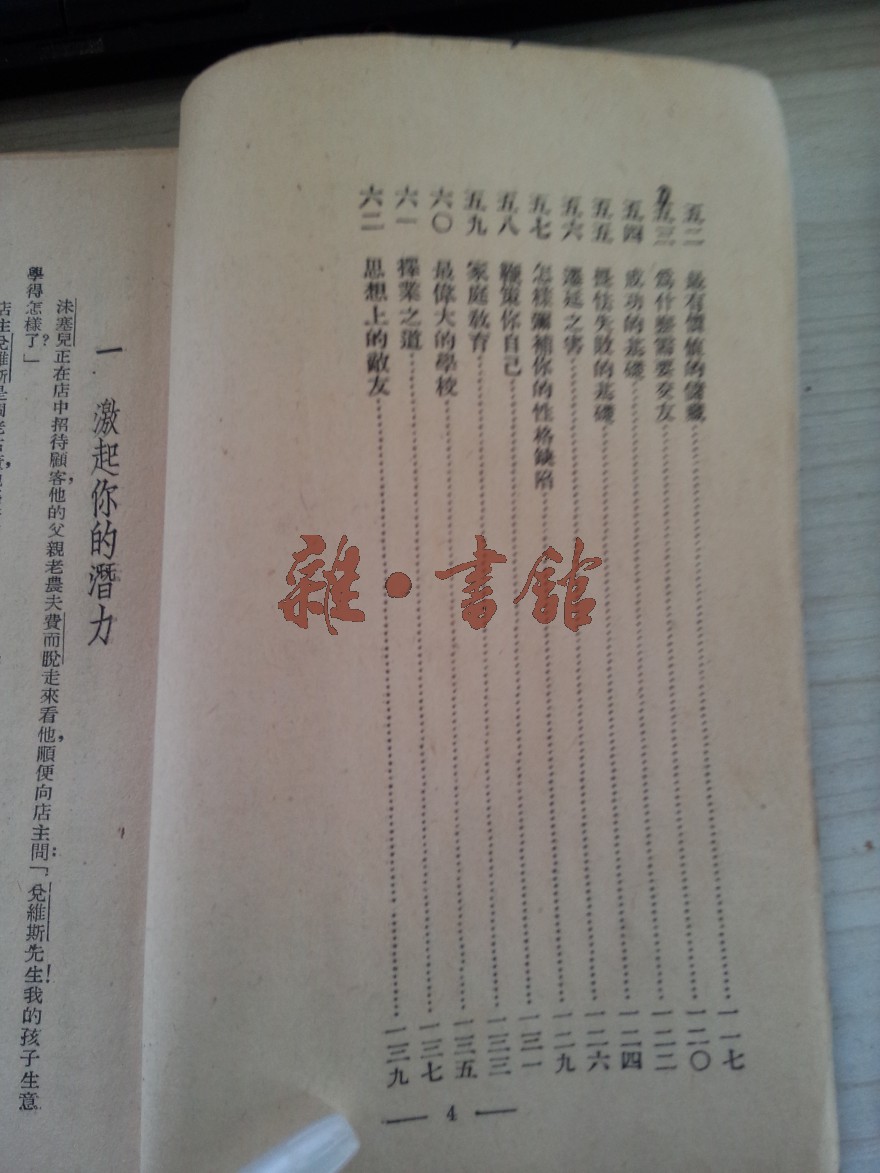 五二 最有價值的儲藏……一一七
五三 爲什麽需要交友……一二〇
五四 成功的基礎……一二二
五五 失敗的基礎……一二四
五六 遷延之害……一二六
五七 怎樣彌補你的性格缺陷……一二九
五八 鞭策你自己……一三一
五九 家庭教育……一三三
六〇 最偉大的學校……一三五
六一 擇業之道……一三七
六二 思想上的敵友……一三九
— 4 —
雜·書館
一 激起你的潛力
沬塞兒正在店中招待顧客,他的父親老農夫費而脫走來看他,順便向店主問:「兌維斯先生!我的孩子生意
學得怎樣了?」
店主兌維斯是個老古